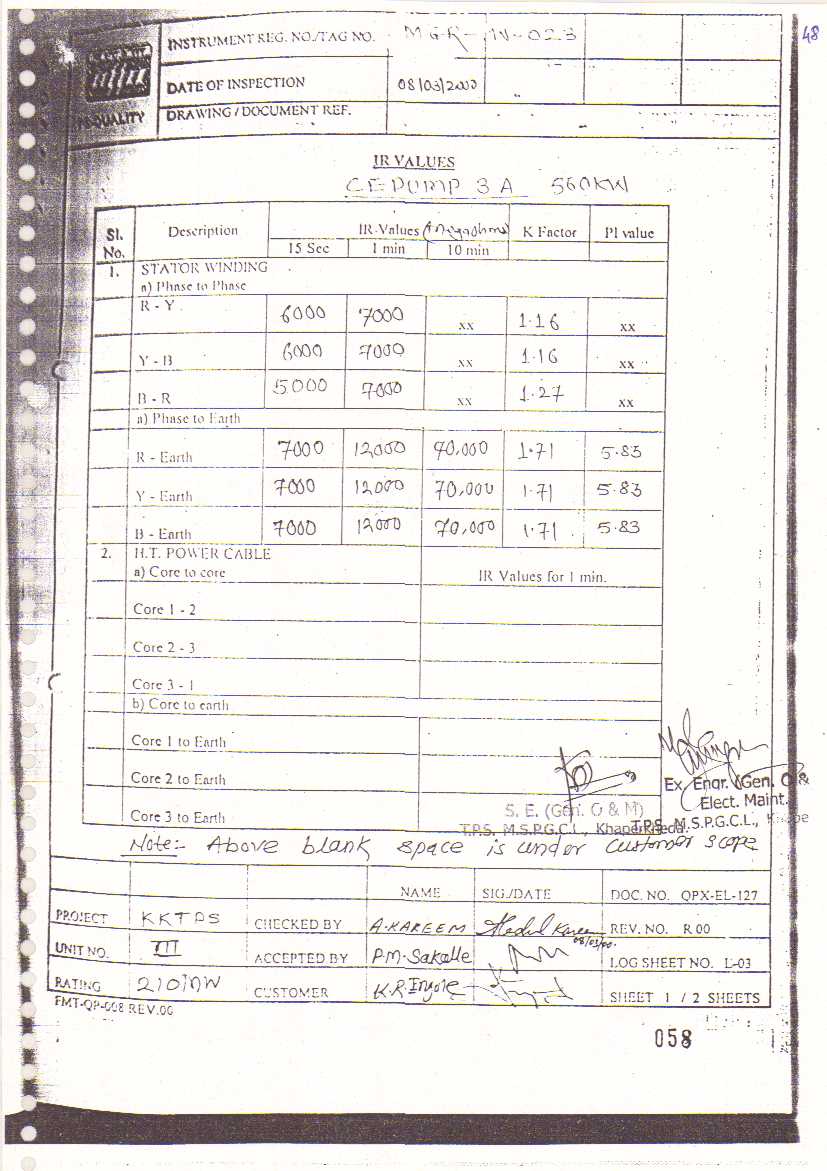 48
INSTRUMENT REG. NO./TAG NO. MGR-IN-023
DATE OF INSPECTION 08/03/2000
QUALITY
DRAWING / DOCUMENT REF.
IR VALUES
CE-PUMP 3A 560KW
Sl. No. Description IR-Values (Megaohms) K Factor PI value
15 Sec 1 min 10 min
1. STATOR WINDING
a) Phase to Phase
R - Y 6000 7000 xx 1.16 xx
Y - B 6000 7000 xx 1.16 xx
B - R 5000 7000 xx 1.27 xx
a) Phase to Earth
R - Earth 7000 12000 70,000 1.71 5.83
Y - Earth 7000 12000 70,000 1.71 5.83
B - Earth 7000 12000 70,000 1.71 5.83
2. H.T. POWER CABLE
a) Core to core IR Values for 1 min.
Core 1 - 2
Core 2 - 3
Core 3 - 1
b) Core to earth
Core 1 to Earth
Core 2 to Earth
Core 3 to Earth
Ex. Engr. (Gen. O &
Elect. Maint.
T.P.S. M.S.P.G.C.L.,
S. E. (Gen. O & M)
T.P.S. M.S.P.G.C.L., Khaperkheda
Note:- Above blank space is under customer scope
NAME SIG./DATE DOC. NO. QPX-EL-127
PROJECT KKTPS CHECKED BY A.KAREEM Abdul Kareem 08/03/00. REV. NO. R 00
UNIT NO. III ACCEPTED BY P.M.Sakalle LOG SHEET NO. L-03
RATING 210MW CUSTOMER K.R.Ingole SHEET 1 / 2 SHEETS
FMT-QP-008 REV.00
058